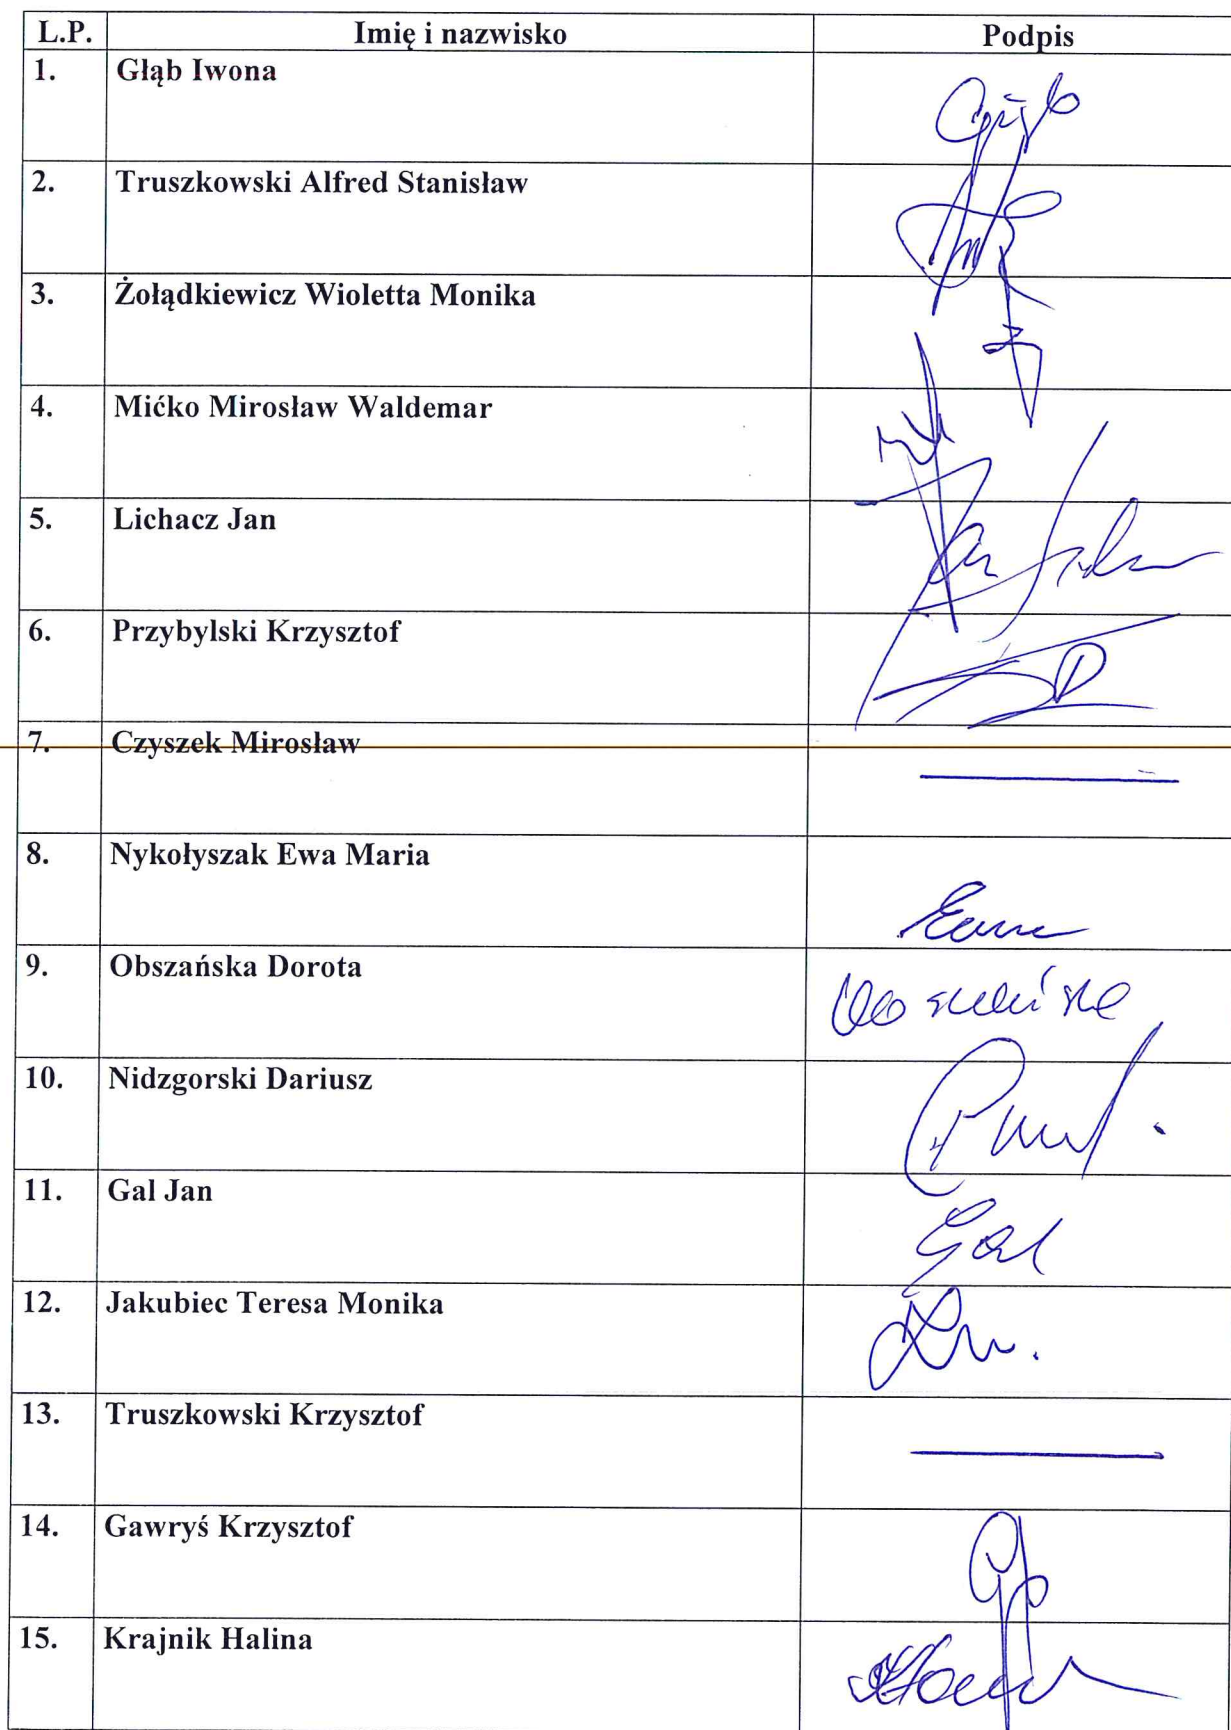 L.P. Imię i nazwisko Podpis
1. Głąb Iwona
2. Truszkowski Alfred Stanisław
3. Żołądkiewicz Wioletta Monika
4. Mićko Mirosław Waldemar
5. Lichacz Jan
6. Przybylski Krzysztof
7. Czyszek Mirosław
8. Nykołyszak Ewa Maria
9. Obszańska Dorota
10. Nidzgorski Dariusz
11. Gal Jan Gal
12. Jakubiec Teresa Monika
13. Truszkowski Krzysztof
14. Gawryś Krzysztof
15. Krajnik Halina